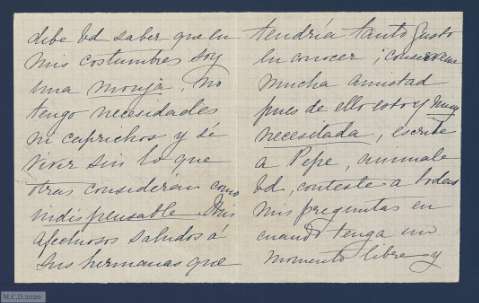 debe Vd saber que en
mis costumbres soy
una monja. No
tengo necesidades
ni caprichos y sé
vivir sin lo que
otras consideran como
indispensable. Mis
afectuosos saludos á
sus hermanas que
tendría tanto gusto
en conocer ;
mucha amistad
pues de ello estoy muy
necesitada, escribe
a Pepe, animale
Vd, conteste a todas
mis preguntas en
cuando tenga un
momento libre y